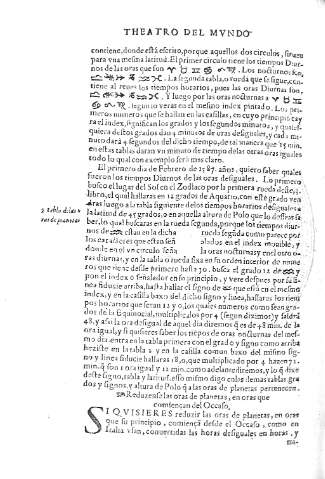 THEATRO DEL MVNDO
conviene, donde está escrito, porque aquellos dos circulos, siruen
para vna mesma latitud. El primer circulo tiene los tiempos Diur-
nos de las oras que son ♈ ♉ ♊ ♋ ♌ ♍. Los nocturnos
La segunda tabla, o rueda que se sigue, con-
tiene al reues los tiempos horarios, pues las oras Diurnas son,
y luego por las oras nocturnas a ♈ ♉ ♊
segun lo veras en el mesmo index pintado. Los pri-
meros numeros que se hallan en las casillas, en cuyo principio cay
ra el index, significan los grados y los segundos minutos, y quales-
quiera destos grados dan 4 minutos de oras desiguales, y cada mi-
nuto dara 4 segundos del dicho tiempo, de tal manera que 15 min.
en estas tablas daran vn minuto de tiempo de las otras oras iguales
todo lo qual con exemplo será mas claro.
El primero dia de Febrero de 1587. años, quiero saber quales
fueron los tiempos Diurnos de las oras desiguales. Lo primero
busco el lugar del Sol en el Zodiaco por la primera rueda deste
libro, al qual hallaras en 12 grados de Aquario, con este grado ven
dras luego a la tabla siguiente de los tiempos horarios desiguales a
la latitud de 45 grados, o en aquella altura de Polo que lo desseas sa-
ber, lo qual buscaras en la rueda segunda, porque los tiempos diur-
2 tabla de las
nos de están en la dicha rueda segunda como parece por
los caracteres que están señalados en el index mouible, y
donde en el vn circulo seña la oras nocturnas y en el otro o-
ras diurnas, y en la tabla o rueda fixa en su orden interior de nume
ros que tiene desde primero hasta 30. busca el grado 12 de ♒ y
pon el index o señalador en su principio, y vete despues por la li-
nea fiducie arriba, hasta hallar el signo de ♒ que está en el mesmo
index, y en la casilla baxo del dicho signo y linea, hallaras los tiem
pos horarios que seran 12 y 0, los quales numeros como sean gra-
dos de la Equinocial, multiplicados por 4 (segun diximos) y saldrá
48, y assi la ora desigual de aquel dia diremos q̃ es de 48 min. de la
ora igual, y si quisieres saber los tiẽpos de oras nocturnas del mes-
mo dia entra en la tabla primera con el grado y signo como arriba
heziste en la tabla 2 y en la casilla como baxo del mismo sig-
no y linea fiducie hallaras 18,0, que multiplicado por 4 hazen 72
min. q̃ son 1 ora igual y 12 min. como adelante diremos, y lo q̃ dixe
deste signo, tabla y latitud, esso mismo digo en los demas tablas gra
dos y signos, y altura de Polo q̃ a las oras de planetas pertenecen.
Reduzense las oras de planetas, en oras que
comiençan del Occaso.
SI QVISIERES reduzir las oras de planetas, en oras
que su principio, comiençã desde el Occaso, como en
Italia vsan, conuertidas las horas desiguales en horas, y
mi-